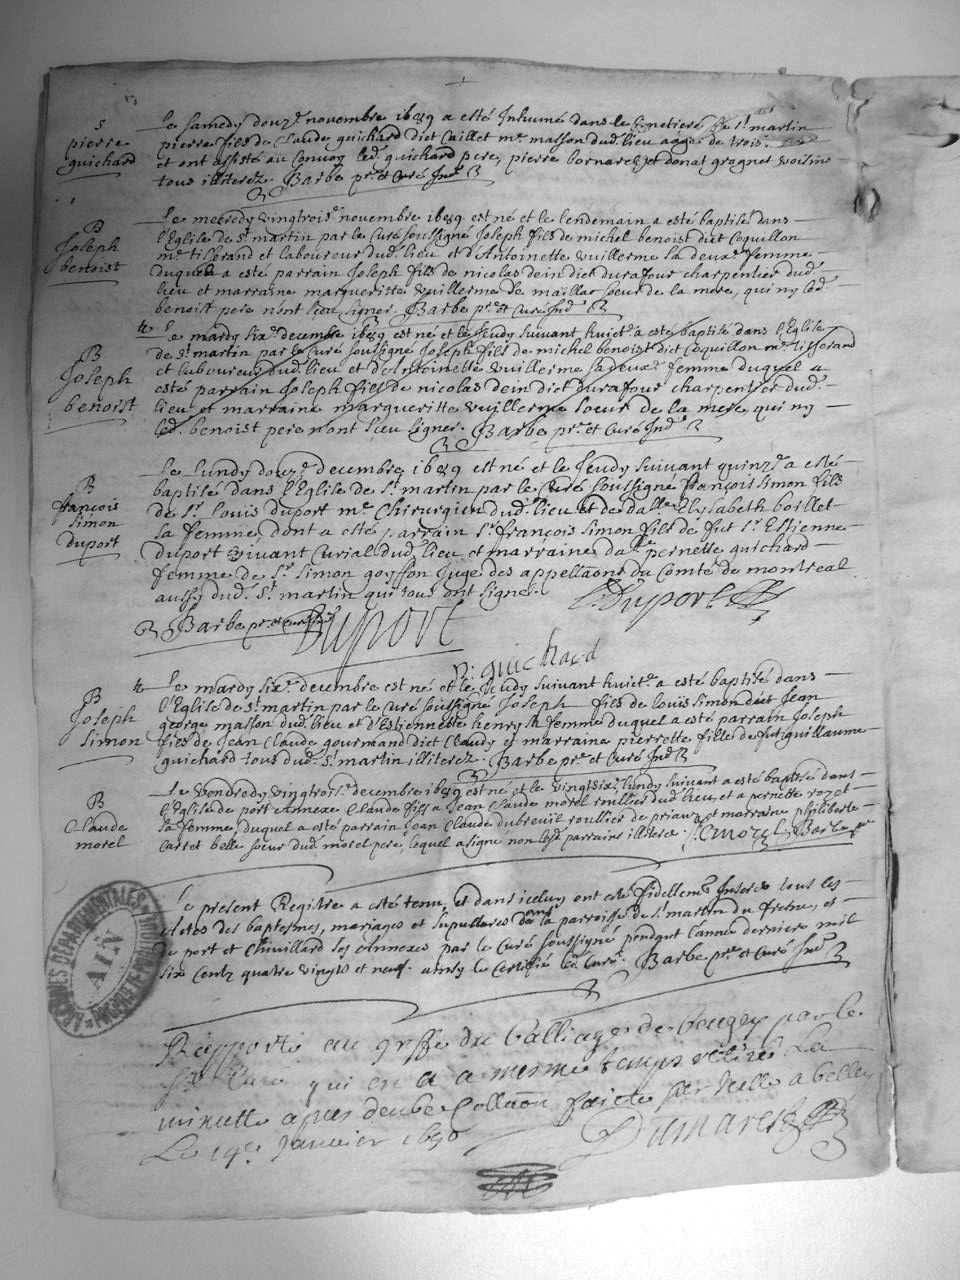 S
pierre
guichard
Le samedy douze novembre 1689 a esté Inhumé dans le Cimetiere de st martin
pierre fils de Claude guichard dict Caillet me masson dud. lieu aagé de trois
et ont assisté au Convoy led. guichard pere, pierre bornarel et donat grognet voisins
tous illiterez. Barbe pre et Curé Ind
B
Joseph
benoist
Le mecredy vingtrois novembre 1689 est né et le lendemain a esté baptisé dans
l'Eglise de st martin par le Curé soussigné Joseph fils de michel benoist dict Coquillon
me tisserand et laboureur dud. lieu et d'Antoinette vuillerme sa deuxe femme
duquel a esté parrain Joseph fils de nicolas dein dict durafour charpentier dud.
lieu et marraine margueritte vuillerme de maillat soeur de la mere, qui ny led.
benoist pere n'ont sceu signer. Barbe pre et Curé Ind
B
Joseph
benoist
Le mardy sixe decembre 1689 est né et le Jeudy suivant huicte a esté baptisé dans l'Eglise
de st martin par le Curé soussigné Joseph fils de michel benoist dict Coquillon me tisserand
et laboureur dud. lieu et d'Antoinette vuillerme sa deuxe femme duquel a
esté parrain Joseph fils de nicolas dein dict durafour charpentier dud.
lieu et marraine margueritte vuillerme soeur de la mere, qui ny
led. benoist pere n'ont sceu signer. Barbe pre et Curé Ind
B
françois
simon
duport
Le Lundy douze decembre 1689 est né et le Jeudy suivant quinze a esté
baptisé dans l'Eglise de st martin par le Curé soussigné françois simon fils
de sr Louis duport me Chirurgien dud. lieu et de dalle Elysabeth boillet
sa femme, dont a esté parrain sr françois simon fils de fut sr Estienne
duport vivant Curial dud. lieu et marraine dalle pernette guichard
femme de sr simon goyffon Juge des appellaons du Comté de montreal
aussy dud. st martin qui tous ont signé.
Duport
Barbe pre et Curé
Duport
guichard
B
Joseph
simon
Le mardy sixe decembre est né et le Jeudy suivant huicte a esté baptisé dans
l'Eglise de st martin par le Curé soussigné Joseph fils de louis simon dict Jean
george masson dud. lieu et d'Estiennette henry sa femme duquel a esté parrain Joseph
fils de Jean Claude gourmand dict Claudy et marraine pierrette fille de fut guillaume
guichard tous dud. st martin illiterez. Barbe pre et Curé Ind
B
Claude
morel
Le vendredy vingtroise decembre 1689 est né et le vingtsixe lundy suivant a esté baptisé dans
l'Eglise de port annexe Claude fils a Jean Claude morel roullier dud. lieu, et a pernette rozet
sa femme, duquel a esté parrain Jean Claude dubreuil roullier de priay et marraine philiberte
Carret belle soeur dud. morel pere, lequel a signé non lesd. parrains illiterez. Morel Barbe pre
Le present Registre a esté tenu, et dans iceluy ont esté fidellement Inserés tous les
actes des baptesmes, mariages et sepultures dans la parroisse de st martin du fresne, et
de port et Chivillard ses annexes par le Curé soussigné pendant l'année derniere mil
six Centz quatre vingts et neuf. ainsy le Certifié led. Curé. Barbe pre et Curé Ind
Rapporté au greffe du balliage de Bougey par le
sr Curé qui en a a mesme temps retiré La
minutte apres deube Collaôn faicte sur icelle a belley
Le 14e Janvier 1690
Dumarest
ARCHIVES DÉPARTEMENTALES
AIN